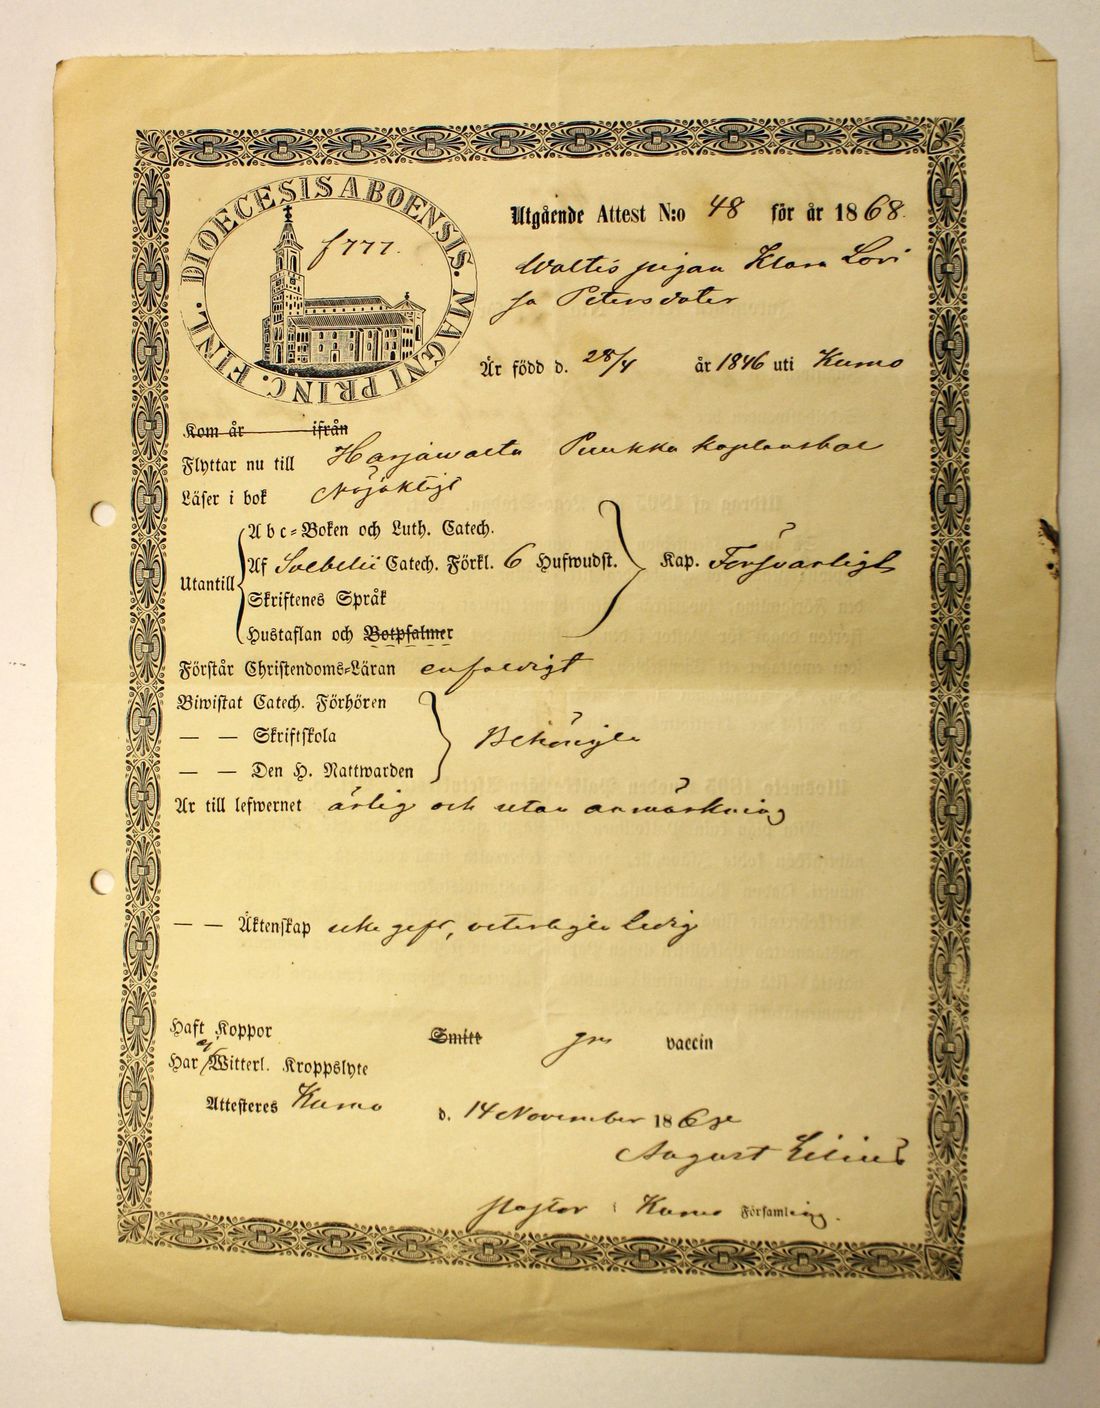 DIOECESIS ABOENSIS. MAGNI PRINC. FINL.
f 777.
Utgående Attest N:o 48 för år 1868.
Woltis pigan Klara Lovi
sa Petersdoter
Är född d. 28/4 år 1846 uti Kumo
Kom år ifrån
Flyttar nu till Harjawalta Puukka kaplansbol
Läser i bok Nöjaktigt
Utantill
Abc-Boken och Luth. Catech.
Af Svebelii Catech. Förkl. 6 Hufwudst. Kap. Försvarligt
Skriftenes Språk
Hustaflan och Botpsalmer
Förstår Christendoms-Läran enfaldigt
Biwistat Catech. Förhören
— — Skriftskola Behörigen
— — Den H. Nattwarden
Är till lefwernet ärlig och utan anmärkning
— — Äktenskap icke gift, veterligen ledig
Haft Koppor Smitt gm vaccin
Har ej Witterl. Kroppslyte
Attesteres Kumo d. 14 November 186
August Lilius
Pastor i Kumo Församling.